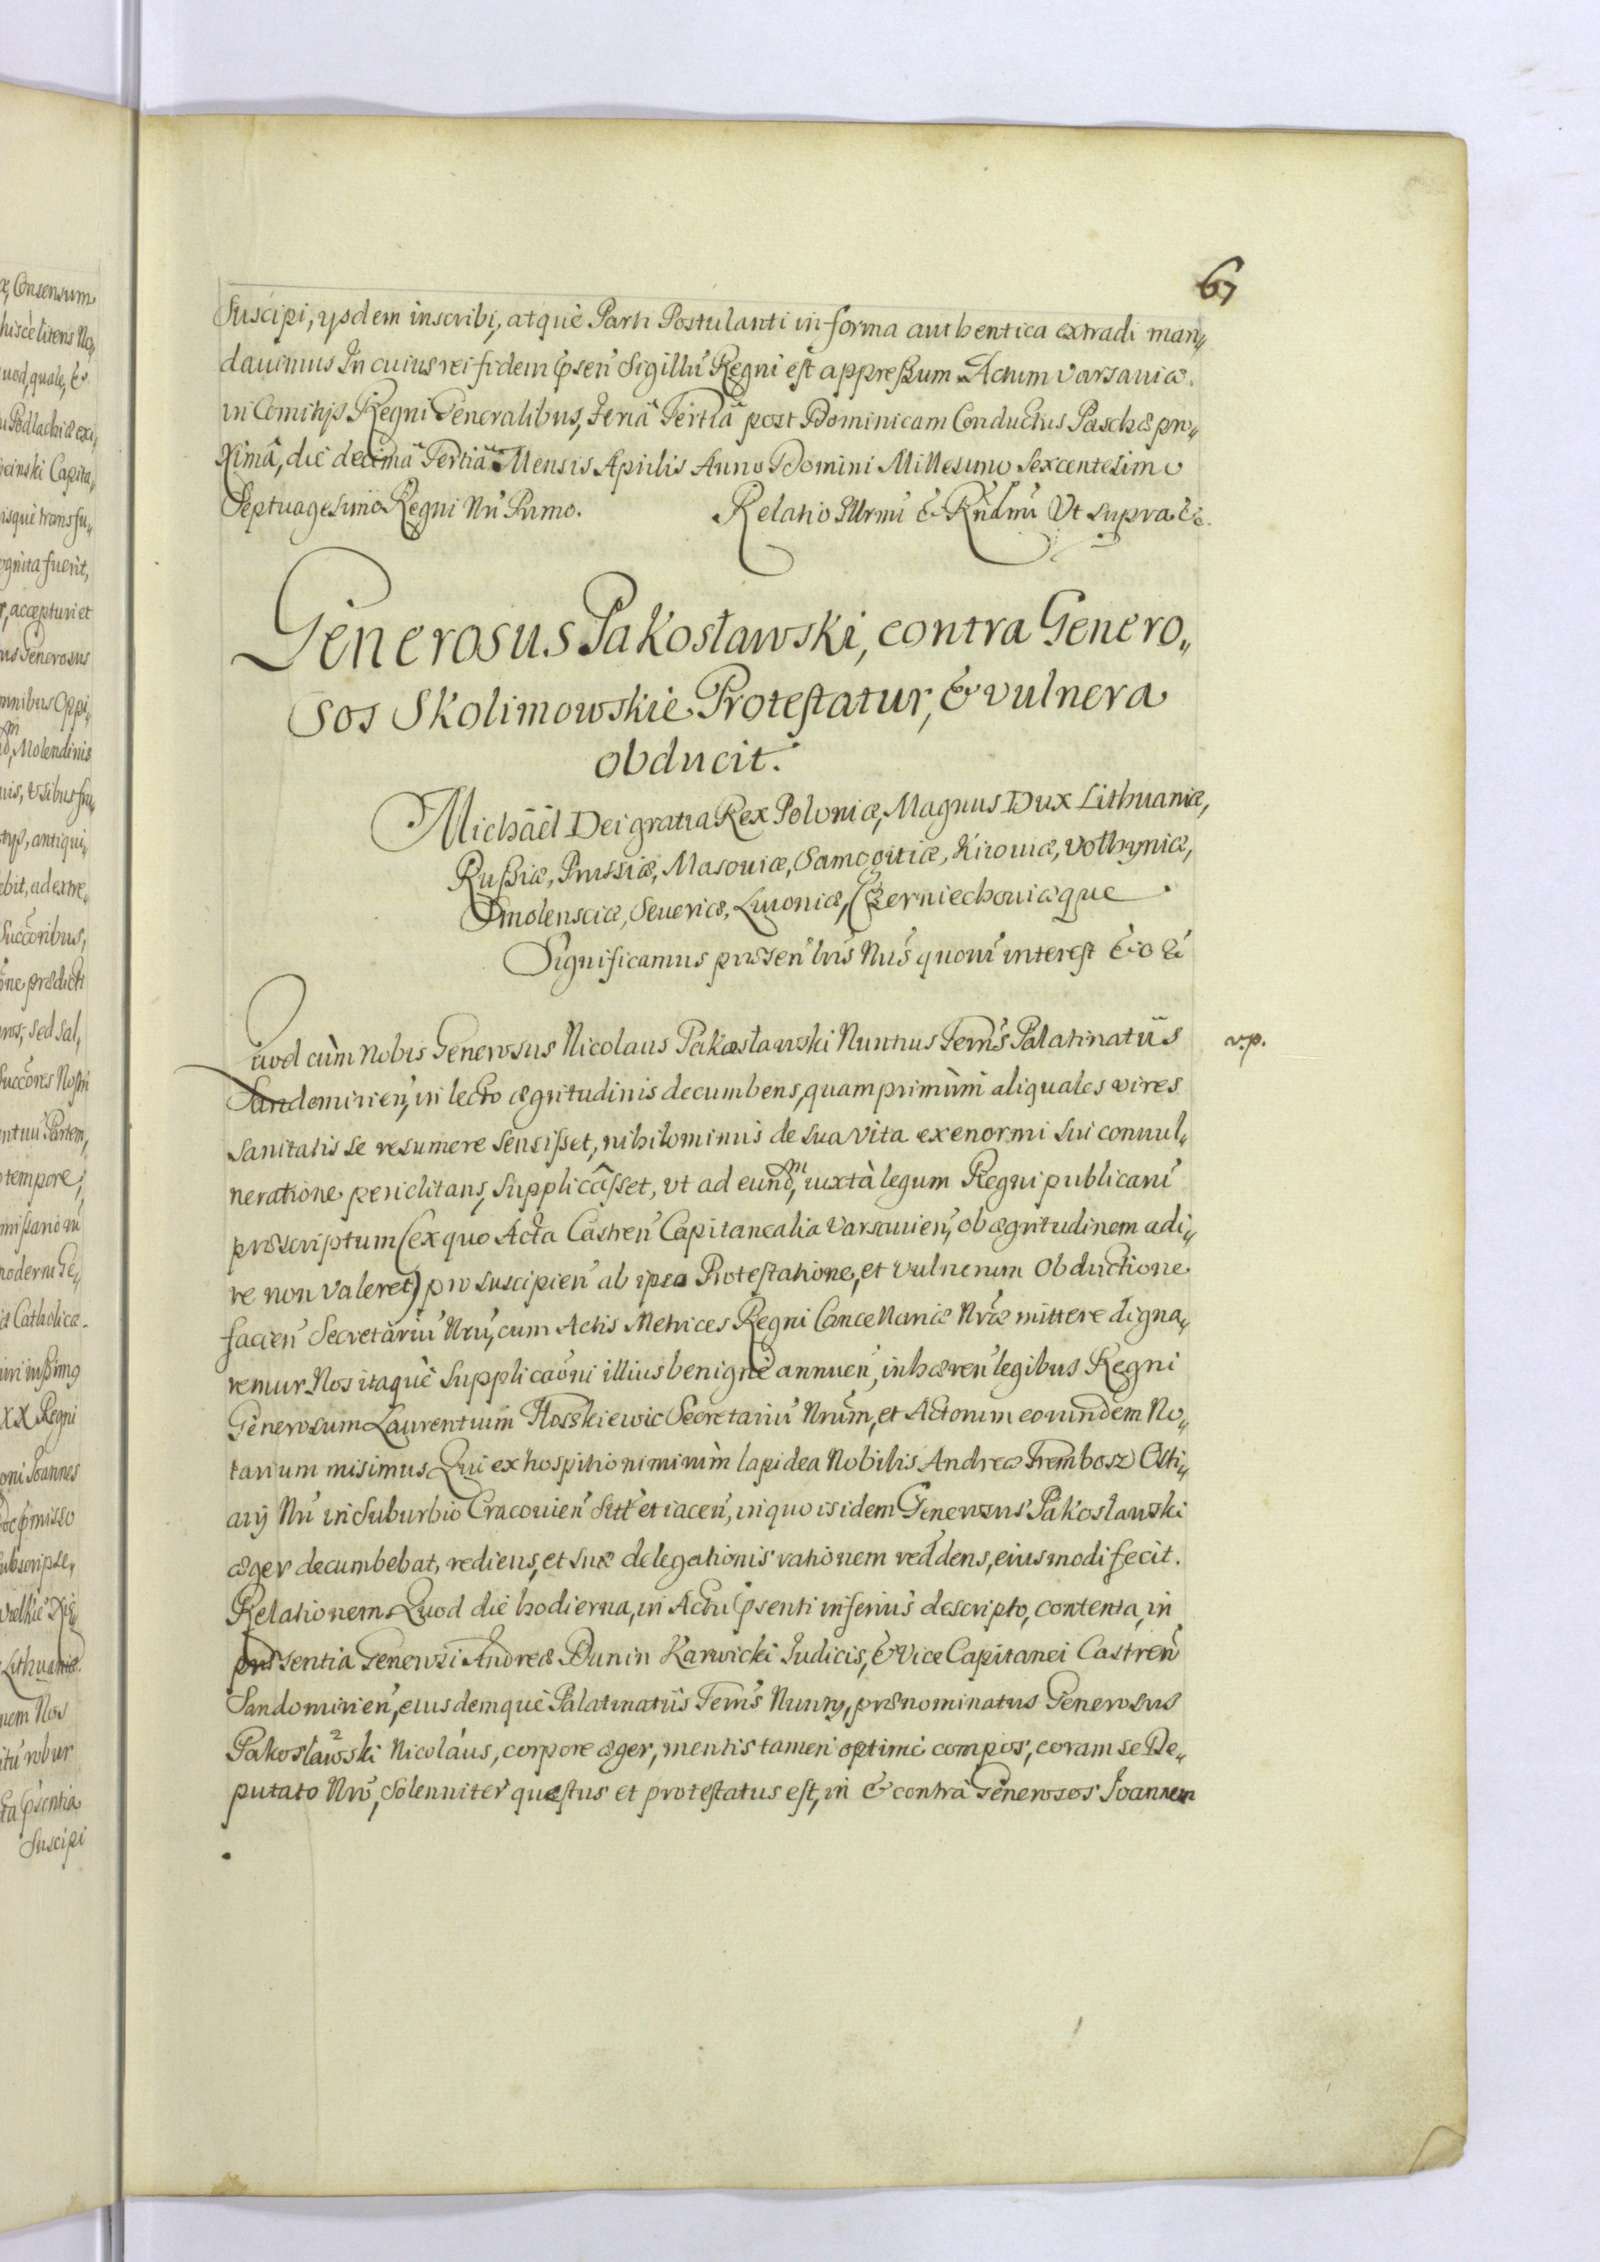 67
Suscipi, ysdem inscribi, atquè Parti Postulanti in forma authentica extradi man„
dauimus In cuius rei fidem pnseñ Sigillũ Regni est appressum. Actum Varsauiæ
in Comitijs Regni Generalibus, Feriâ Tertiâ post Dominicam Conductus Paschæ pro„
ximâ, diè decimâ Tertiâ Mensis Aprilis Anno Domini Millesimo Sexcentesimo
Septuagesimo Regni Nri Primo. Relatio Illrmi & Rndmi Vt supra &c.
Generosus Pakosławski, contra Genero„
sos Skolimowskie Protestatur, & vulnera
obducit.
Michäel Dei gratia Rex Poloniæ, Magnus Dux Lithuaniæ,
Russiæ, Prussiæ, Masouiæ, Samogitiæ, Kiiouiæ, Volhyniæ,
Smolensciæ, Seueriæ, Liuoniæ, Czerniechouiæque
Significamus præsen̄ lris Nris quorũ interest &c &
Quod cùm nobis Generosus Nicolaus Pakosławski Nuntius Terris Palatinatûs
Sandomirień, in lecto ægritudinis decumbens, quamprimùm aliquales vires
sanitatis se resumere sensisset, nihilominùs de sua vita ex enormi sui conuul„
neratione periclitans, supplicâsset, vt ad eund̃m, iuxtà legum Regni publicarũ
præscriptum (ex quo Acta Castreñ Capitanealia Varsauieñ, ob ægritudinem adi„
re non valeret) pro suscipieñ ab ipso Protestatione, et Vulnerum Obductione
facień Secretariũ Nrũ, cum Actis Metrices Regni Cancellariæ Nræ mittere digna„
remur Nos itaquè Supplicaõni illius benignè annueñ, inhæreñ legibus Regni
Generosum Laurentium Flosskiewic Secretariũ Nrũm, et Actorum eorundem No„
tarium misimus Qui ex hospitio nimirùm lapidea Nobilis Andreæ Trembosz Osti„
arij Nri in Suburbio Cracouień Sitẽ et iaceñ, in quo is idem Generosus Pakosławski
æger decumbebat, rediens, et suæ delegationis rationem reddens, eiusmodi fecit
Relationem Quod diè hodierna, in Actu pnsenti inferiùs descripto, contenta, in
præsentia Generosi Andreæ Dunin Karwicki Iudicis, & Vice Capitanei Castreñ
Sandomirień, eiusdemquè Palatinatûs Terris Nuntij, prænominatus Generosus
Pakosławski Nicolaus, corpore æger, mentis tamen optimè compos, coram se De„
putato Nro, Solenniter quæstus et protestatus est, in & contrà Generosos Ioannem
v.p.